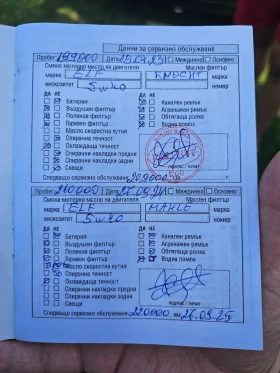 Данни за сервизно обслужване
Пробег: 199000 Дата 15.09.23 Междинно Основно
Смяна моторно масло на двигателя Маслен филтър
марка ELF KNECHT марка
вискозитет 5w40 номер
ДА НЕ ДА НЕ
Батерия Канален ремък
Въздушен филтър Агрегатен ремък
Поленов филтър Обтягаща ролка
Горивен филтър Водна помпа
Масло скоростна кутия
Спирачна течност
Охлаждаща течност
Спирачни накладки предни
Спирачни накладки задни
Свещи подпис / печат
Следващо сервизно обслужване 209000
Пробег: 210000 Дата Междинно Основно
Смяна моторно масло на двигателя Маслен филтър
марка ELF MAHLE марка
вискозитет 5w40 номер
ДА НЕ ДА НЕ
Батерия Канален ремък
Въздушен филтър
Поленов филтър Обтягаща ролка
Горивен филтър Водна помпа
Масло скоростна кутия
Спирачна течност
Охлаждаща течност
Спирачни накладки предни
Спирачни накладки задни
Свещи подпис / печат
Следващо сервизно обслужване 220000 км 26.09.25